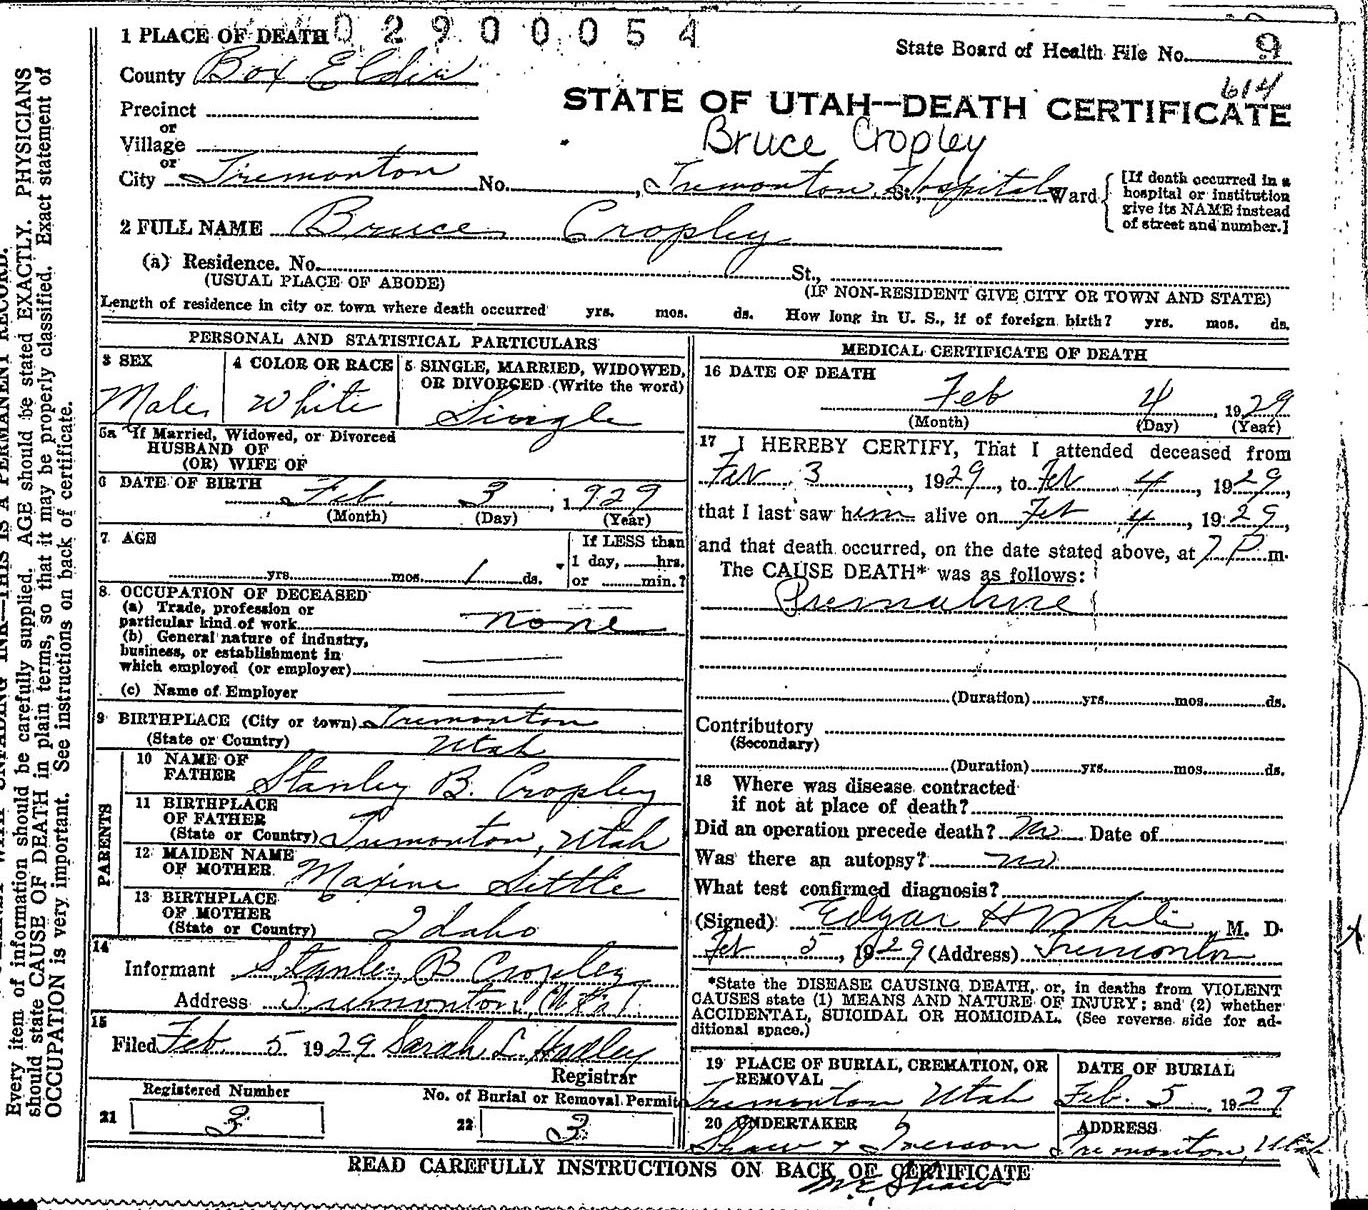 1 PLACE OF DEATH 02900054
State Board of Health File No. 9
County Box Elder
614
STATE OF UTAH--DEATH CERTIFICATE
Precinct
or
Village
Bruce Cropley
or
City Tremonton No. , Tremonton St., Hospital Ward
[If death occurred in a
hospital or institution
give its NAME instead
of street and number.]
2 FULL NAME Bruce Cropley
(a) Residence. No. St.,
(USUAL PLACE OF ABODE) (IF NON-RESIDENT GIVE CITY OR TOWN AND STATE)
Length of residence in city or town where death occurred yrs. mos. ds. How long in U. S., if of foreign birth? yrs. mos. ds.
PERSONAL AND STATISTICAL PARTICULARS
3 SEX
Male
4 COLOR OR RACE
White
5 SINGLE, MARRIED, WIDOWED,
OR DIVORCED (Write the word)
Single
5a If Married, Widowed, or Divorced
HUSBAND OF
(OR) WIFE OF
6 DATE OF BIRTH
Feb 3, 1929
(Month) (Day) (Year)
7 AGE
yrs. mos. 1 ds.
If LESS than
1 day, hrs.
or min.?
8 OCCUPATION OF DECEASED
(a) Trade, profession or
particular kind of work none
(b) General nature of industry,
business, or establishment in
which employed (or employer)
(c) Name of Employer
9 BIRTHPLACE (City or town) Tremonton
(State or Country) Utah
PARENTS
10 NAME OF
FATHER Stanley B. Cropley
11 BIRTHPLACE
OF FATHER
(State or Country) Tremonton, Utah
12 MAIDEN NAME
OF MOTHER Maxine Settle
13 BIRTHPLACE
OF MOTHER
(State or Country) Idaho
14
Informant Stanley B Cropley
Address Tremonton, Utah
15
Filed Feb. 5 1929 Sarah L. Hadley
Registrar
Registered Number
21 3
No. of Burial or Removal Permit
22 3
MEDICAL CERTIFICATE OF DEATH
16 DATE OF DEATH
Feb 4, 1929
(Month) (Day) (Year)
17 I HEREBY CERTIFY, That I attended deceased from
Feb 3, 1929, to Feb 4, 1929,
that I last saw him alive on Feb 4, 1929,
and that death occurred, on the date stated above, at 7 P m.
The CAUSE DEATH* was as follows:
Premature
(Duration) yrs. mos. ds.
Contributory
(Secondary)
(Duration) yrs. mos. ds.
18 Where was disease contracted
if not at place of death?
Did an operation precede death? No Date of
Was there an autopsy? no
What test confirmed diagnosis?
(Signed) Edgar H White, M. D.
Feb 5, 1929 (Address) Tremonton
*State the DISEASE CAUSING DEATH, or, in deaths from VIOLENT
CAUSES state (1) MEANS AND NATURE OF INJURY; and (2) whether
ACCIDENTAL, SUICIDAL OR HOMICIDAL. (See reverse side for ad-
ditional space.)
19 PLACE OF BURIAL, CREMATION, OR
REMOVAL
Tremonton Utah
DATE OF BURIAL
Feb. 5 1929
20 UNDERTAKER
Shaw & Iverson
ADDRESS
Tremonton, Utah
READ CAREFULLY INSTRUCTIONS ON BACK OF CERTIFICATE
Shaw
RECORD.
Every item of information should be carefully supplied. AGE should be stated EXACTLY. PHYSICIANS
should state CAUSE OF DEATH in plain terms, so that it may be properly classified. Exact statement of
OCCUPATION is very important. See instructions on back of certificate.